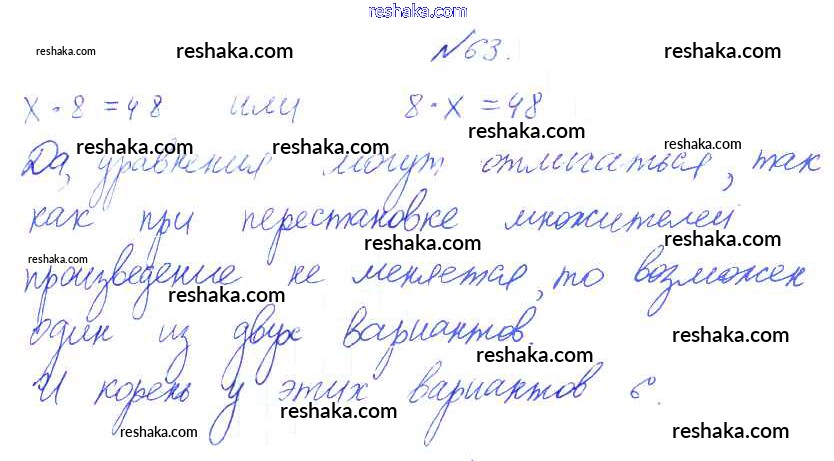 reshaka.com
reshaka.com reshaka.com №63. reshaka.com
x · 8 = 48 или 8 · x = 48
reshaka.com reshaka.com reshaka.com reshaka.com
Да, уравнения могут отличаться, так
как при перестановке множителей
reshaka.com reshaka.com reshaka.com
произведение не меняется, то возможен
reshaka.com reshaka.com
один из двух вариантов.
reshaka.com reshaka.com
И корень у этих вариантов 6.
reshaka.com reshaka.com reshaka.com